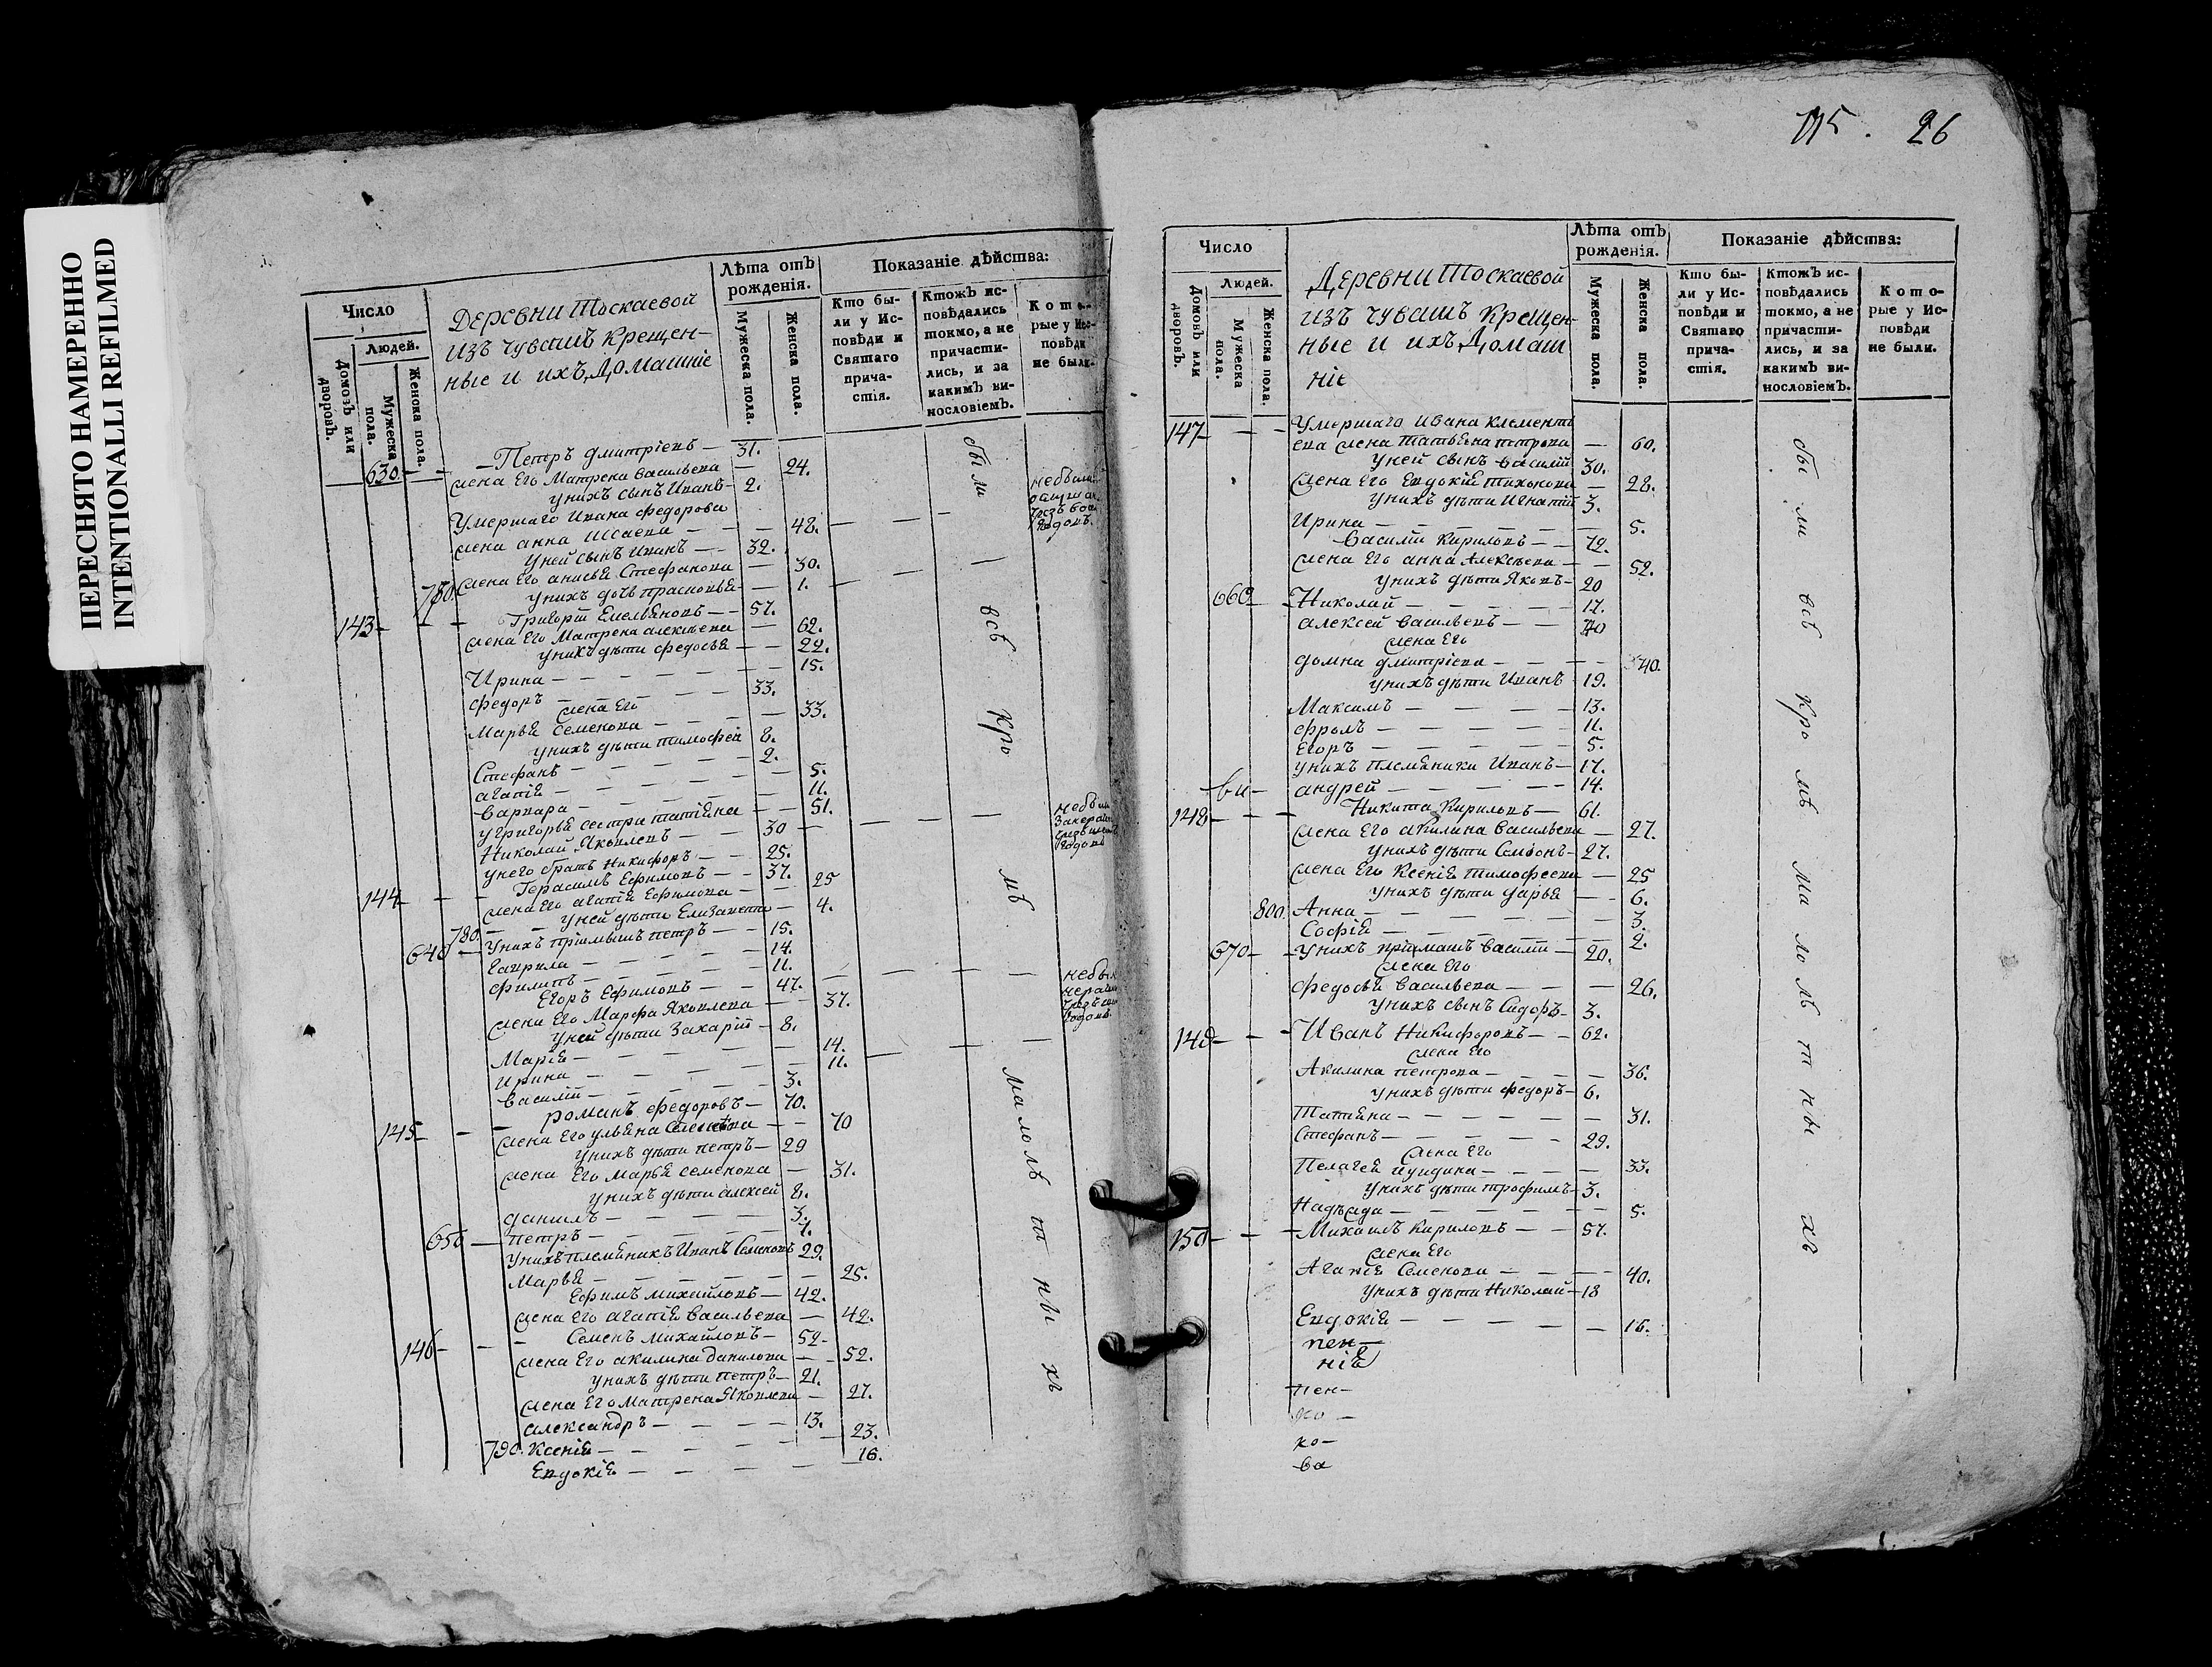 ПЕРЕСНЯТО НАМЕРЕННО
INTENTIONALLI REFILMED
Число
Людей.
Домовъ или дворовъ.
Мужеска пола.
Женска пола.
Деревни Тоскаевой
изъ чувашъ крещен-
ные и ихъ домашніе
Лѣта отъ рожденія.
Мужеска пола.
Женска пола.
Показаніе дѣйства:
Кто бы-
ли у Ис-
повѣди и
Святаго
прича-
стія.
Ктожъ ис-
повѣдались
токмо, а не
причасти-
лись, и за
какимъ ви-
нословіемъ.
Кото-
рые у Ис-
повѣди
не были.
630 — Петръ Дмитріевъ — 31.
жена Его Матрена васильева — 24.
унихъ сынъ Иванъ — 2.
Умершаго Ивана федорова
жена анна Исаева — 48.
уней сынъ Иванъ — 32.
жена Его анисья Стефанова — 30.
унихъ дочь прасковья — 1.
143 — Григорій Емельяновъ — 57.
жена Его Матрена алексѣева — 62.
унихъ дѣти федосья — 22.
Ирина — 15.
федоръ — 33.
жена Его
Марья Семенова — 33.
унихъ дѣти тимофей 8.
Стефанъ — 2.
агапія — 5.
варвара — 11.
угригорья сестра татіяна — 51.
Николай Яковлевъ — 30
унего братъ Никифоръ — 25.
144 — Герасимъ Ефимовъ — 37.
жена Его агапія Ефимова — 25
уней дѣти Елизавета — 4.
640 780. Унихъ пріимышъ петръ — 15.
гаврила — 14.
филипъ — 11.
Егоръ Ефимовъ — 47.
жена Его Марфа Яковлева — 37.
уней дѣти Захарій — 8.
Марія — 14.
ирина — 11.
василій — 3.
145 — романъ федоровъ — 70.
жена Его ульяна — 70
унихъ дѣти петръ — 29
жена Его марья семенова — 31.
унихъ дѣти алексей 8.
данилъ — 3.
650 — петръ — 1.
Унихъ племянникъ Иванъ Семеновъ 29.
Марья — 25.
Ефимъ михайловъ — 42.
жена Его агапія васильева — 42.
146 — Семенъ михайловъ — 52
жена Его акилина данилова — 52.
унихъ дѣти петръ — 21.
жена Его матрена Яковлева — 27.
александръ — 13.
790. Ксенія — 23.
Евдокія — 16.
были
всѣ
кро
мѣ
малолѣ
т
ны
хъ
115. 26
Число
Людей.
Домовъ или дворовъ.
Мужеска пола.
Женска пола.
Деревни Тоскаевой
изъ чувашъ крещен-
ные и ихъ домаш
ніе
Лѣта отъ рожденія.
Мужеска пола.
Женска пола.
Показаніе дѣйства:
Кто бы-
ли у Ис-
повѣди и
Святаго
прича-
стія.
Ктожъ ис-
повѣдались
токмо, а не
причасти-
лись, и за
какимъ ви-
нословіемъ.
Кото-
рые у Ис-
повѣди
не были.
147 — Умершаго Ивана клементь
ева жена татьяна петрова — 60.
уней сынъ василій 30.
жена Его Евдокія тихонова — 28.
унихъ дѣти Игнатій 3.
Ирина — 5.
василій кириловъ — 72.
жена Его анна Алексѣева — 52.
унихъ дѣти Яковъ — 20
660 — Николай — 17.
алексей васильевъ — 40
жена Его
домна дмитріева — 40.
унихъ дѣти Иванъ 19.
Максимъ — 13.
фролъ — 11.
Егоръ — 5.
унихъ племяники Иванъ — 17.
андрей — 14.
148 — Никита Кириловъ — 61.
жена Его акилина васильева — 27.
унихъ дѣти Семіонъ — 27.
жена Его Ксенія тимофеева — 25
унихъ дѣти дарья — 6.
800. Анна — 3.
Софія — 2.
670 — унихъ приимашъ василій — 20.
жена Его
федосья васильева — 26.
унихъ сынъ Сидоръ — 3.
149 — Иванъ Никифоровъ — 62.
жена Его
Акилина петрова — 36.
унихъ дѣти федоръ — 6.
Татіяна — 31.
Стефанъ — 29.
жена Его
Пелагея — 33.
унихъ дѣти трофимъ — 3.
Надежда — 5.
150 — Михаилъ кириловъ — 57.
жена Его
Агапія Семенова — 40.
унихъ дѣти Николай — 18
Евдокія — 16.
пен—
нія
пен—
ко —
ко —
ва
бы
ли
всѣ
кро
мѣ
ма
ло
лѣ
т
ны
хъ